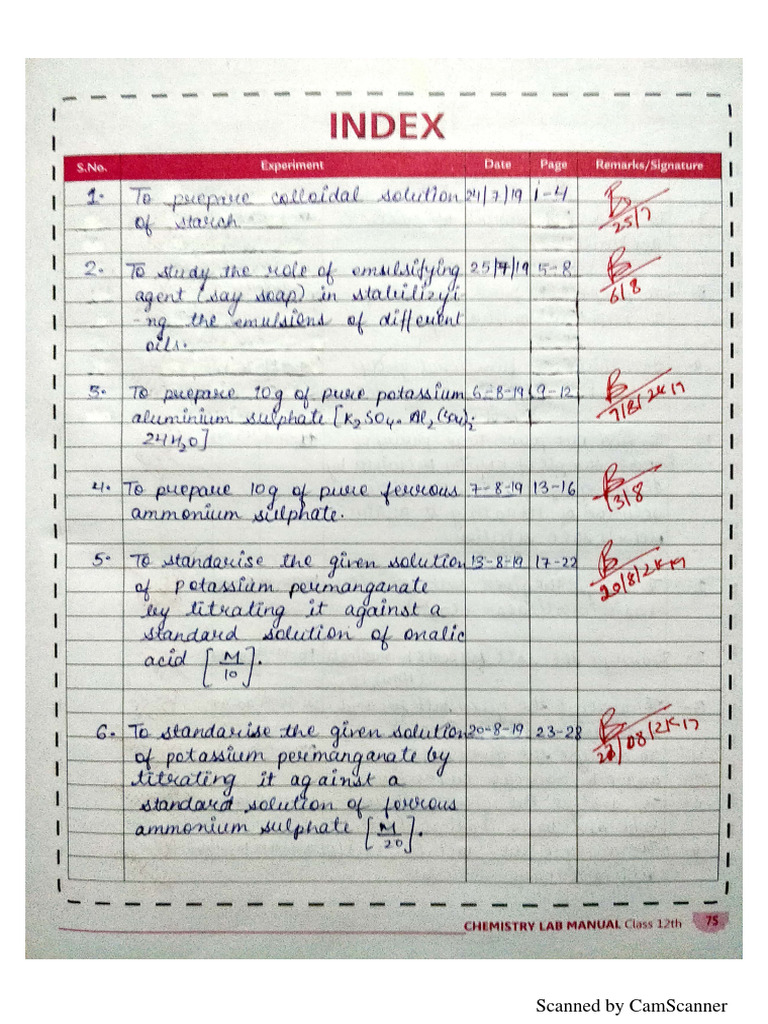 INDEX
S.No. Experiment Date Page Remarks/Signature
1. To prepare colloidal solution 24/7/19 1-4
of starch. 25/7
2. To study the role of emulsifying 25/7/19 5-8
agent (say soap) in stabilizyi 6/8
-ng the emulsions of different
oils.
3. To prepare 10g of pure potassium 6-8-19 9-12
aluminium sulphate [K2SO4. Al2(SO4)3; 7/8/2K19
24H2O]
4. To prepare 10g of pure ferrous 7-8-19 13-16
ammonium sulphate. 13/8
5. To standarise the given solution 13-8-19 17-22
of potassium permanganate 20/8/2K19
by titrating it against a
standard solution of oxalic
acid [M/10].
6. To standarise the given solution 20-8-19 23-28
of potassium permanganate by /08/2K19
titrating it against a
standard solution of ferrous
ammonium sulphate [M/20].
CHEMISTRY LAB MANUAL Class 12th 75
Scanned by CamScanner